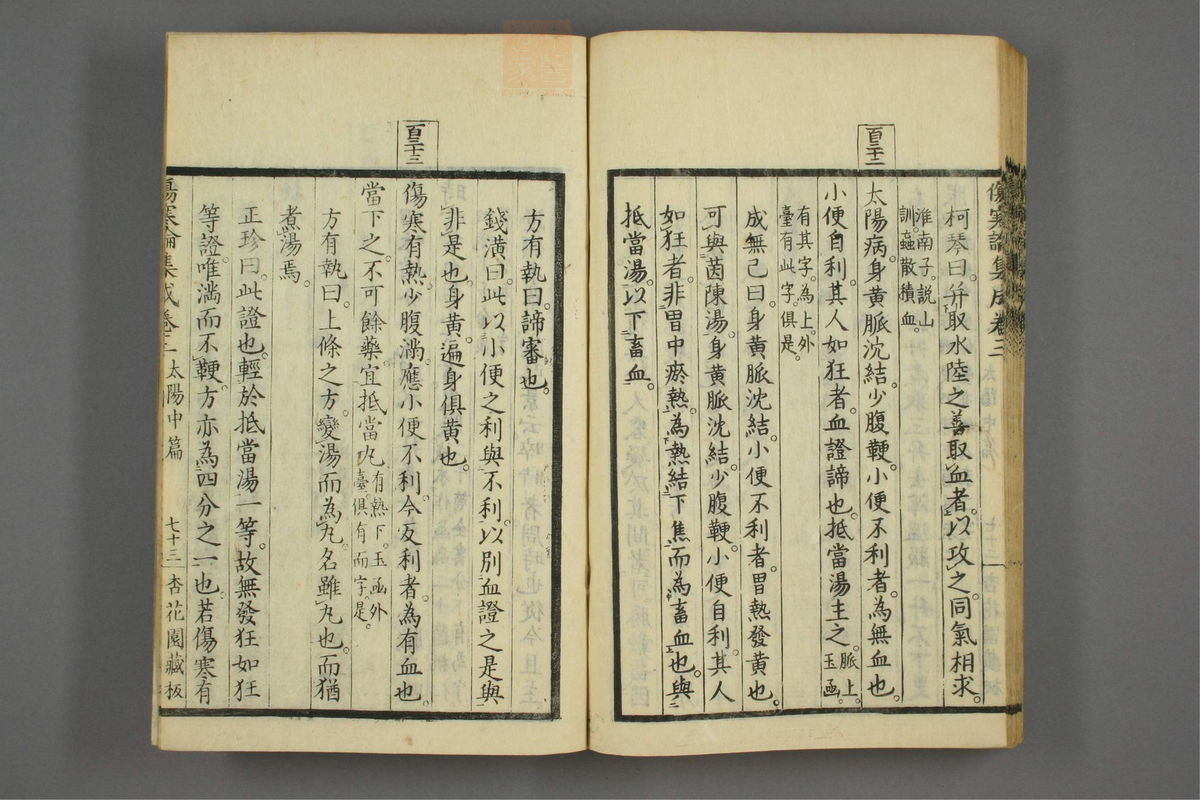 傷寒論集成卷三
柯琴曰。并取水陸之善取血者。以攻之。同氣相求。
淮南子。說山
訓。蝱散積血。
百三十二
太陽病。身黃脈沈結。少腹鞕。小便不利者。為無血也。
小便自利。其人如狂者。血證諦也。抵當湯主之。脈上。玉函。
有其字。為上。外
臺有此字。俱是。
成無己曰。身黃脈沈結。小便不利者。胃熱發黃也。
可與茵陳湯。身黃脈沈結。少腹鞕。小便自利。其人
如狂者。非胃中瘀熱。為熱結下焦而為畜血也。與
抵當湯。以下畜血。
方有執曰。諦審也。
錢潢曰。此以小便之利與不利。以別血證之是與
非是也。身黃。遍身俱黃也。
百三十三
傷寒有熱。少腹滿。應小便不利。今反利者。為有血也。
當下之。不可餘藥。宜抵當丸。有熱下。玉函外臺。俱有而字。是。
方有執曰。上條之方。變湯而為丸。名雖丸也。而猶
煮湯焉。
正珍曰。此證也。輕於抵當湯一等。故無發狂如狂
等證。唯滿而不鞕。方亦為四分之一也。若傷寒有
傷寒論集成卷三 太陽中篇 七十三 杏花園藏板